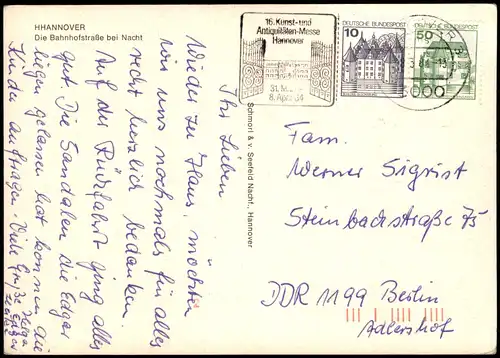 HHANNOVER
Die Bahnhofstraße bei Nacht
16. Kunst- und
Antiquitäten-Messe
Hannover
31. März -
8. Apr. 84
10
DEUTSCHE BUNDESPOST
50
DEUTSCHE BUNDESPOST
3000
Schmorl & v. Seefeld Nachf., Hannover
Ihr Lieben
Wieder zu Haus, möchten
wir uns nochmals für alles
recht herzlich bedanken.
Auf der Rückfahrt ging alles
gut. Die Sandalen die Edgar
liegen gelassen hat können die
Kinder auftragen. Viele Grüße Helga
Edgar
Fam.
Werner Sigrist
Steinbachstraße 75
DDR 1199 Berlin
Adlershof